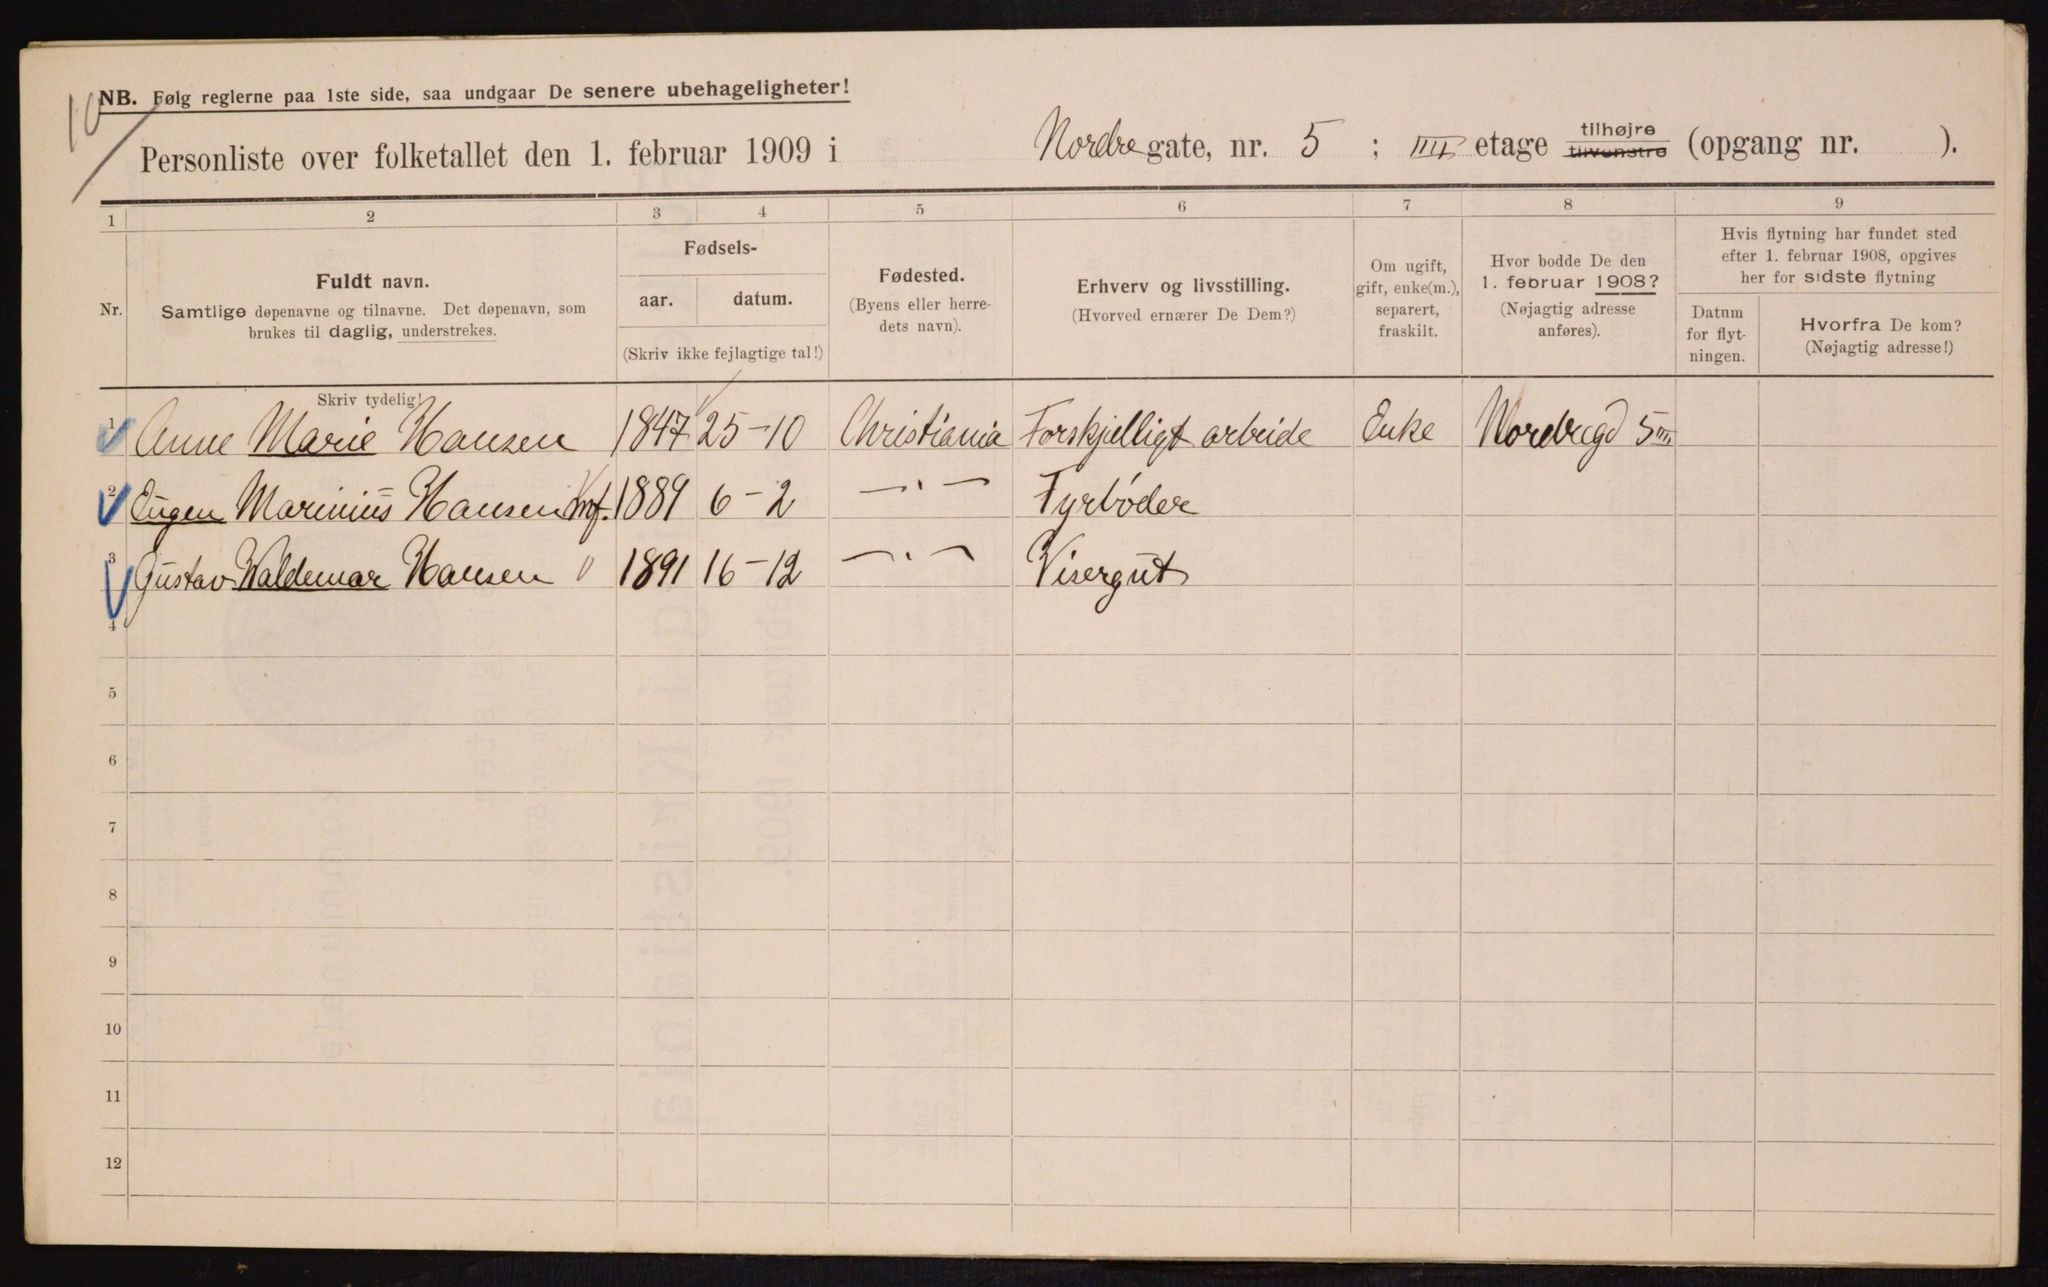 10
NB. Følg reglerne paa 1ste side, saa undgaar De senere ubehageligheter!
Personliste over folketallet den 1. februar 1909 i Nordre gate, nr. 5 ; IIII etage tilhøjre tilvenstre (opgang nr. ).
1 2 3 4 5 6 7 8 9
Nr.
Fuldt navn.
Samtlige døpenavne og tilnavne. Det døpenavn, som
brukes til daglig, understrekes.
Fødsels-
aar. datum.
(Skriv ikke fejlagtige tal!)
Fødested.
(Byens eller herre-
dets navn).
Erhverv og livsstilling.
(Hvorved ernærer De Dem?)
Om ugift,
gift, enke(m.),
separert,
fraskilt.
Hvor bodde De den
1. februar 1908?
(Nøjagtig adresse
anføres).
Hvis flytning har fundet sted
efter 1. februar 1908, opgives
her for sidste flytning
Datum
for flyt-
ningen.
Hvorfra De kom?
(Nøjagtig adresse!)
Skriv tydelig!
1 Anne Marie Hansen 1847 25-10 Christiania Forskjelligt arbeide Enke Nordregd 5 III
2 Eugen Marinius Hansen 1889 6-2 —"— Fyrbøder
3 Gustav Waldemar Hansen " 1891 16-12 —"— Visergut
4
5
6
7
8
9
10
11
12